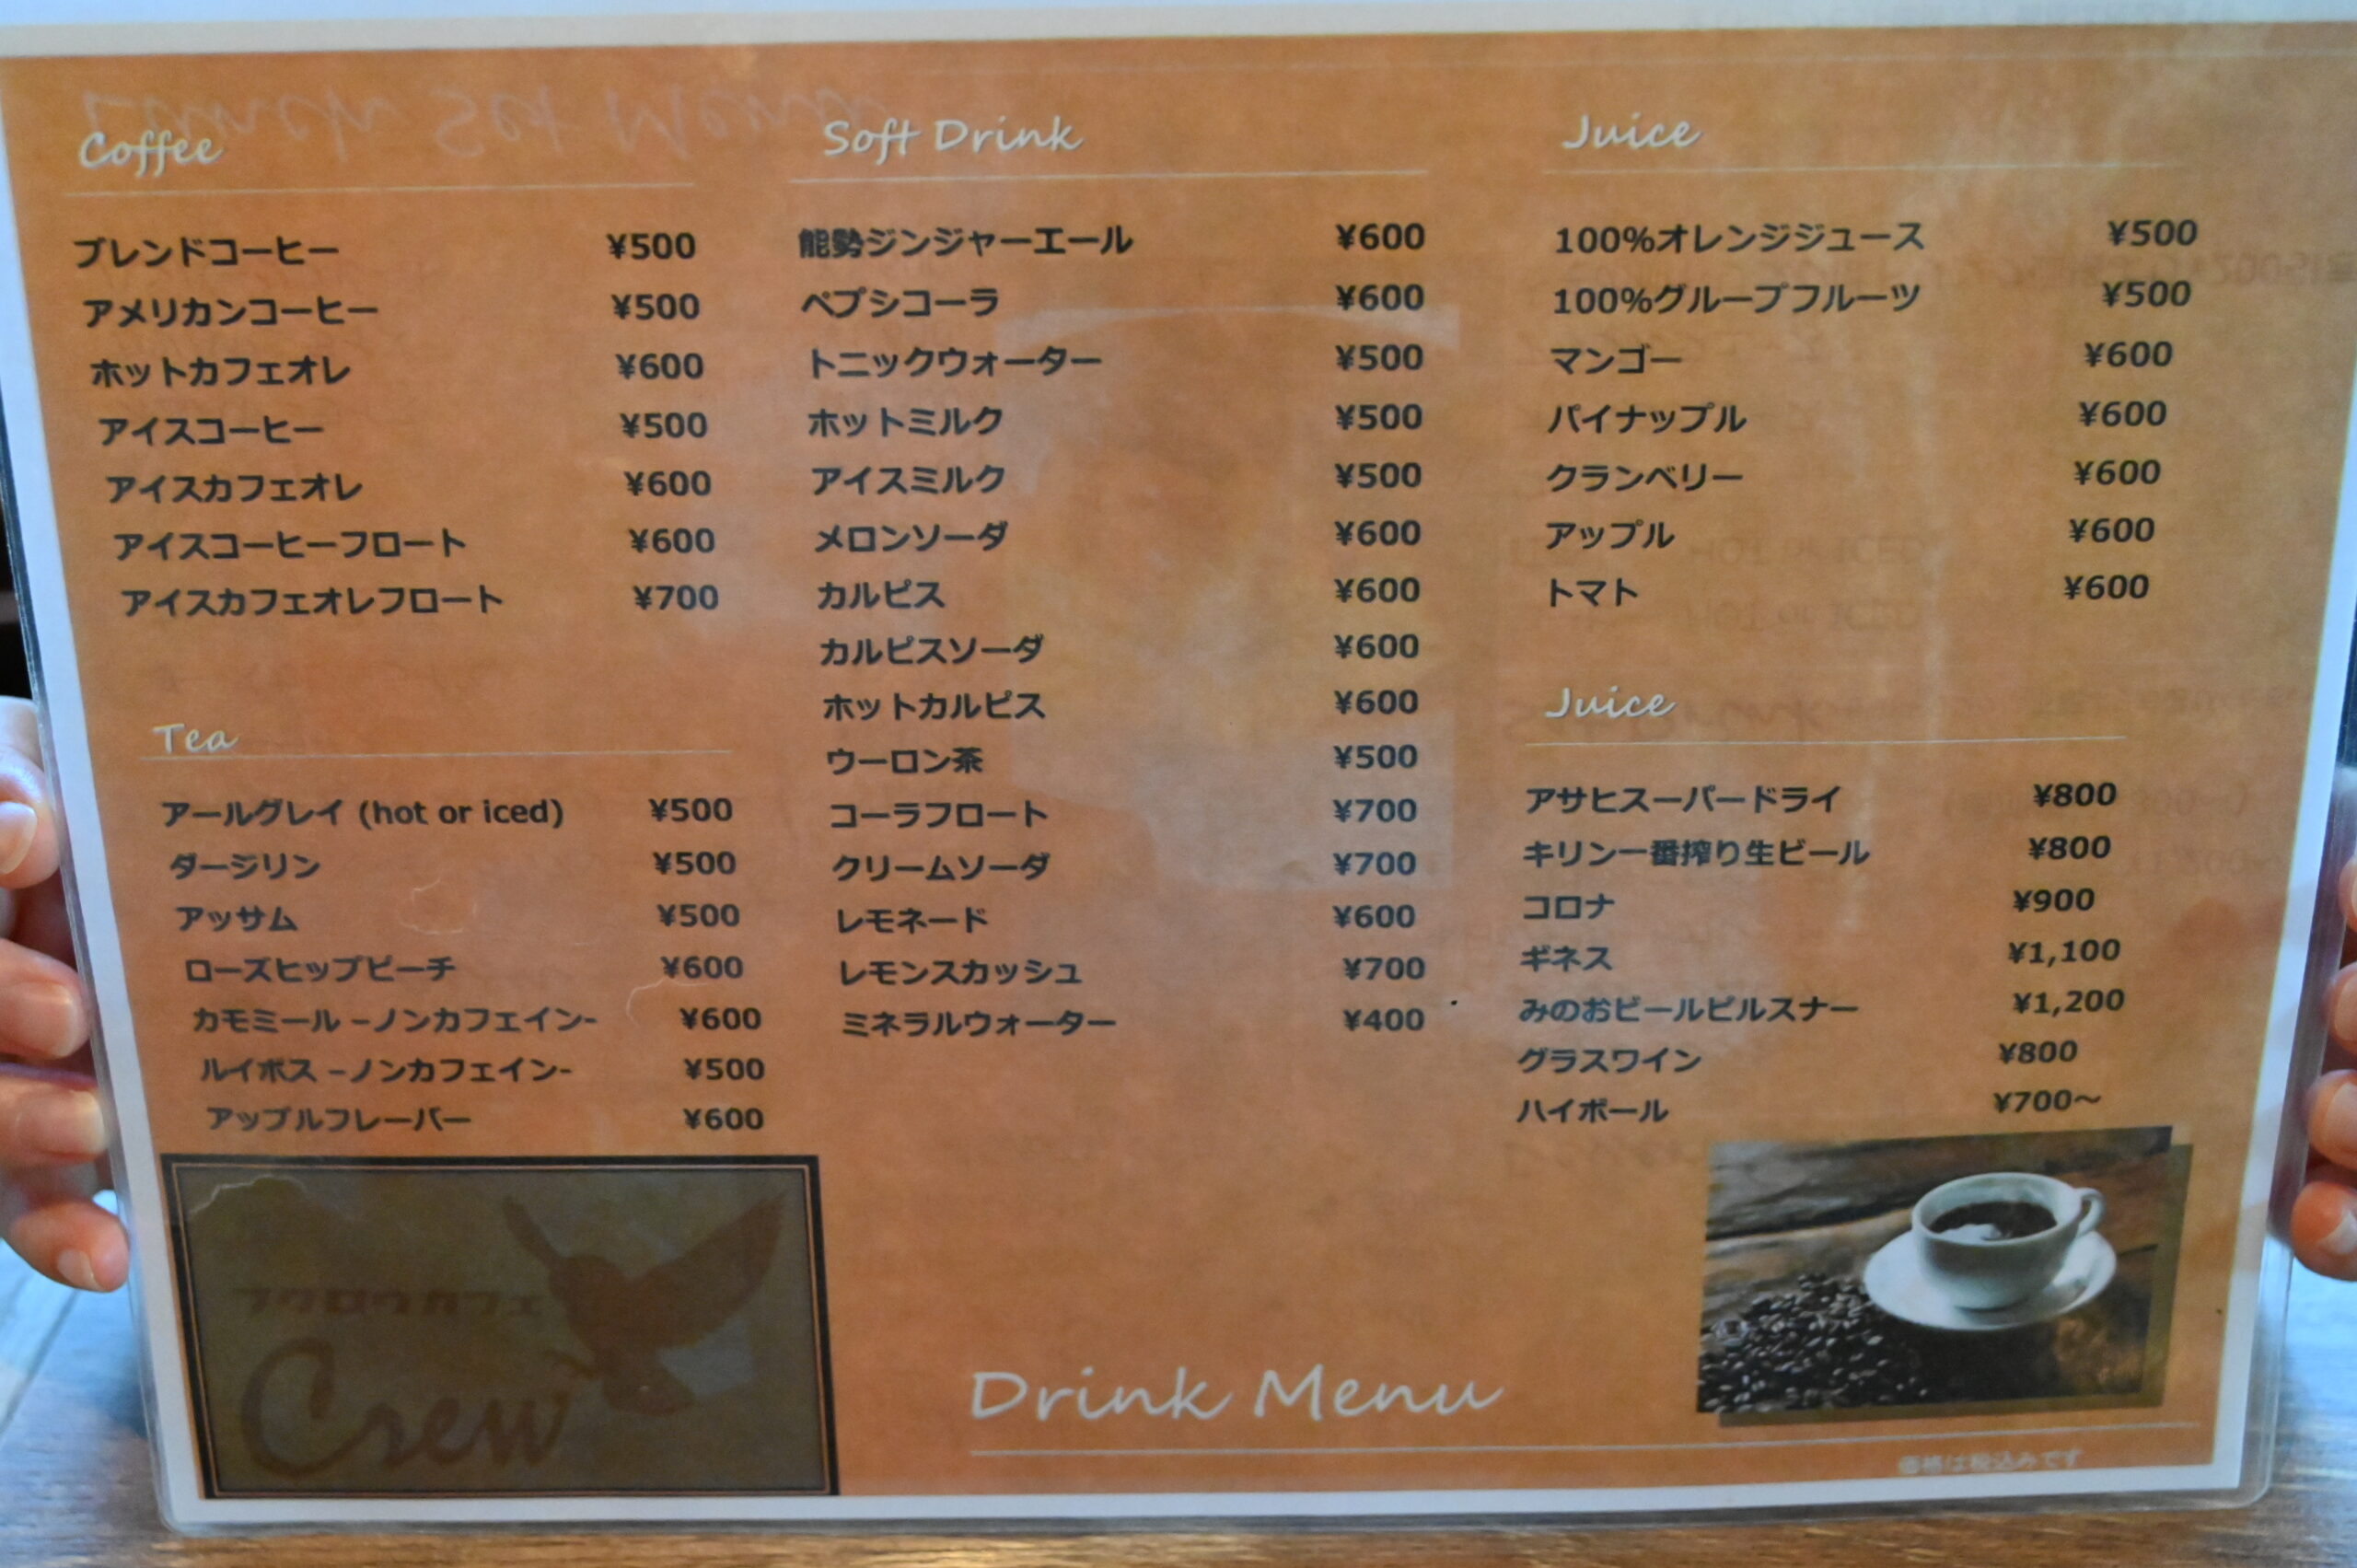 Coffee
ブレンドコーヒー ¥500
アメリカンコーヒー ¥500
ホットカフェオレ ¥600
アイスコーヒー ¥500
アイスカフェオレ ¥600
アイスコーヒーフロート ¥600
アイスカフェオレフロート ¥700
Tea
アールグレイ (hot or iced) ¥500
ダージリン ¥500
アッサム ¥500
ローズヒップピーチ ¥600
カモミール –ノンカフェイン- ¥600
ルイボス –ノンカフェイン- ¥500
アップルフレーバー ¥600
フクロウカフェ
Crew
Soft Drink
能勢ジンジャーエール ¥600
ペプシコーラ ¥600
トニックウォーター ¥500
ホットミルク ¥500
アイスミルク ¥500
メロンソーダ ¥600
カルピス ¥600
カルピスソーダ ¥600
ホットカルピス ¥600
ウーロン茶 ¥500
コーラフロート ¥700
クリームソーダ ¥700
レモネード ¥600
レモンスカッシュ ¥700
ミネラルウォーター ¥400
Juice
100%オレンジジュース ¥500
100%グループフルーツ ¥500
マンゴー ¥600
パイナップル ¥600
クランベリー ¥600
アップル ¥600
トマト ¥600
Juice
アサヒスーパードライ ¥800
キリン一番搾り生ビール ¥800
コロナ ¥900
ギネス ¥1,100
みのおビールピルスナー ¥1,200
グラスワイン ¥800
ハイボール ¥700～
Drink Menu
価格は税込みです